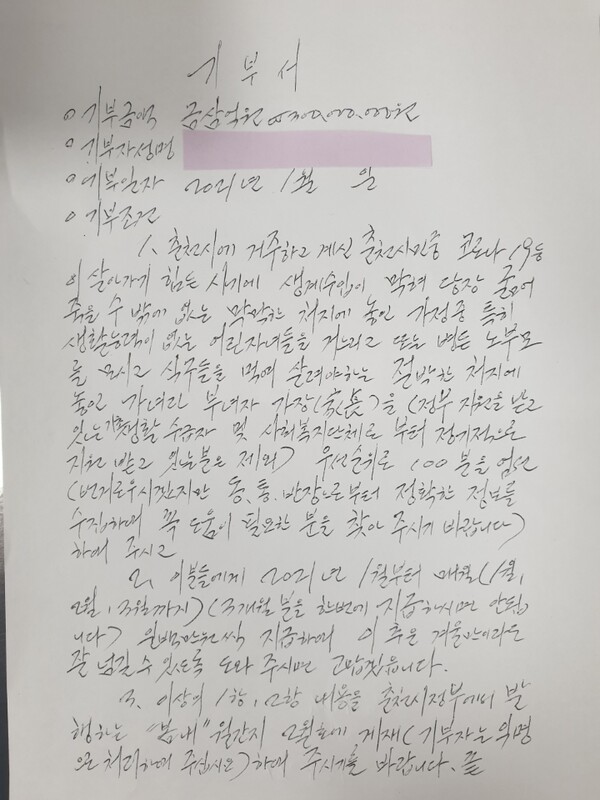 기부서
o 기부금액 금삼억원 ₩300,000,000원
o 기부자성명
o 기부일자 2021년 1월 일
o 기부조건
1. 춘천시에 거주하고 계신 춘천시민중 코로나 19등
이 살아가기 힘든 시기에 생계수입이 막혀 당장 굶어
죽을 수 밖에 없는 막막한 처지에 놓인 가정중 특히
생활능력이 없는 어린자녀들을 거느리고 또는 병든 노부모
를 모시고 식구들을 먹여 살려야하는 절박한 처지에
놓인 가녀린 부녀자 가장(家長)을 (정부 지원을 받고
있는 기초생활 수급자 및 사회복지단체로 부터 정기적으로
지원 받고 있는분은 제외) 우선순위로 100분을 엄선
(번거로우시겠지만 동, 통, 반장으로부터 정확한 정보를
수집하여 꼭 도움이 필요한 분을 찾아 주시기 바랍니다)
하여 주시고
2. 이분들에게 2021년 1월부터 매월(1월,
2월, 3월까지) (3개월분을 한번에 지급하시면 안됩
니다) 일백만원씩 지급하여 이 추운 겨울만이라도
잘 넘길 수 있도록 도와 주시면 고맙겠읍니다.
3. 이상의 1항, 2항 내용을 춘천시정부에서 발
행하는 "봄내" 월간지 2월호에 게재( 기부자는 무명
으로 처리하여 주십시요) 하여 주시기를 바랍니다. 끝